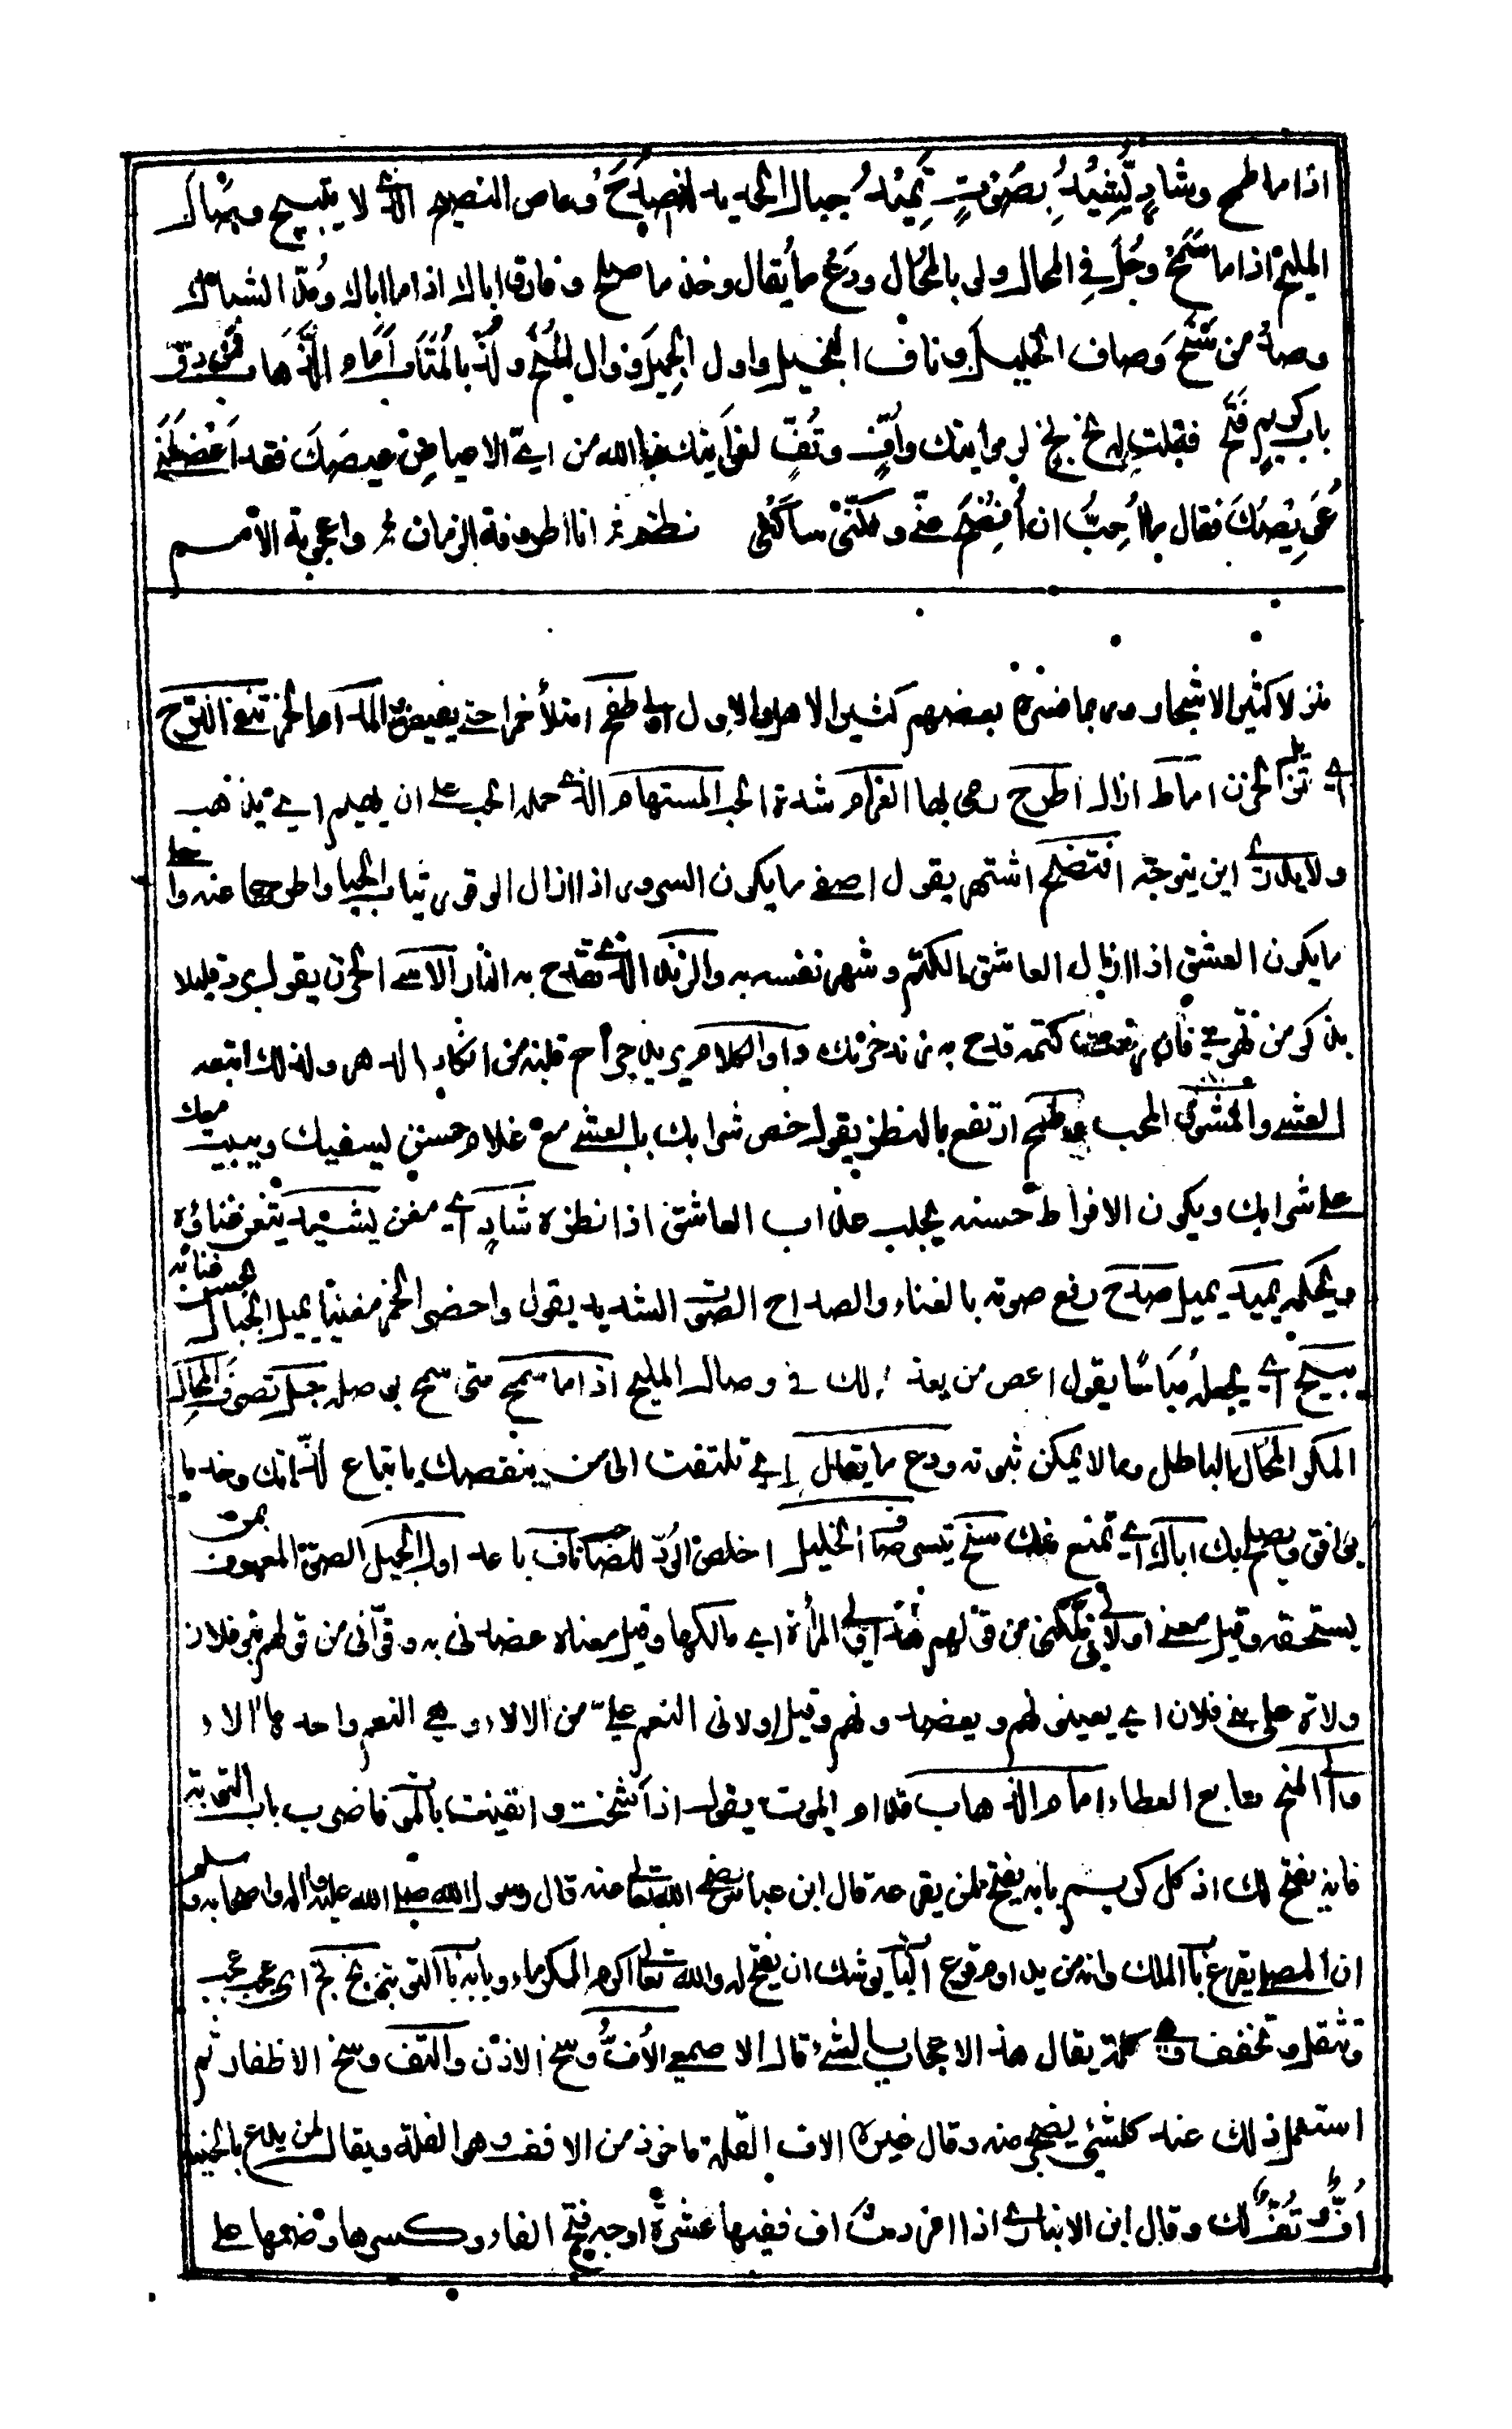 اذا ما طمح وشادٍ يُشِيدُ بِصَوْتٍ تَمِيْدُ جبال الحديد له ان صَدَحَ وعاص النصيح الذى لا يبيح وصال
المليح اذا ما سَمَحْ وجُلْ في المحال ولو بالمُحال ودَعْ ما يُقال وخذ ما صلح وفارق اباك اذا ما اباك ومُدّ الشباك
وصد من سَنَحَ وصاف الخليل وناف البخيل واول الجميل ووال المِنَحْ ولُذْ بالمَتاب اَمَام الذَّهاب فمن دقّ
باب كريم فَتَحَ فقلت له بخ بخ لروايتك واُفٍّ وتُفٍّ لغوايتك فبالله من ايّ الاعياص عيصك فقد اَعْضَلَنِي
عَوِيْصُكَ فقال ما اُحِبُّ ان اُفْصِحَ عنّي ولكنّي ساَكْنِي نظم انا اطروفة الزمان واعجوبة الامم
نزلا كثير الاشجار وربما فسره بعضهم كثير الاهل والاول اولى طفح امتلأ خمرا حتى يفيض الماء الخمر تنفي الترح
اي تزيل الحزن اماط ازال اطرح رمى بها الغرام شدة الحب المستهام الذي حمله الحب على ان يهيم اي يذهب
ولا يدري اين يتوجه افتضح اشتهر يقول اصفى ما يكون السرور اذا ازال الوقور ثياب الحيا واطرحها عنه واحلى
ما يكون العشق اذا ازال العاشق الكتم وشهر نفسه به والزند الذي تقدح به النار الاسى الحزن يقول
العشى والمشوق المحب طمح ارتفع بالنظر يقول خص شرابك بالعشى مع غلام حسن ليسقيك ويبيت معك
على شرابك ويكون الافراط حسنه يجلب عذاب العاشق اذا نظره شادٍ اي مغن يشيد يتغنى غناؤه
ويحكمه يميد يميل صدح رفع صوته بالغناء والصداح الصوت الشديد يقول واحضر الخمر مغنيا يميل الجبال لحسن غنائه
يبيح اي يجعله مباحا يقول اعص من يعذلك في وصال المليح اذا ما سمح متى سمح بوصله جل تصرف المحال
المكر المحال الباطل وما لا يمكن ثبوته ودع ما يقال اي تلتفت الى من ينقصك باتباع لذاتك وخذ ما
يوافق ويصلح بك اباك اي تمنع عنك سنح تيسر صاف الخليل اخلص الود للصاحب ناف باعد اول الجميل المعروف بمن
يستحقه وقيل معنى اولاني ملكني من قولهم هذا ولي المرأة اي مالكها وقيل معناه عضدني به وقوّاني من قولهم بنو فلان
ولاة على بني فلان اي يعينونهم ويعضدونهم وقيل اولاني انعم علي من الالاء وهي النعم واحدها الاء
وال المنح تابع العطاء امام الذهاب قدام الموت يقول اذا شخت وايقنت بالموت فاضرب باب التوبة
فانه يفتح لك اذ كل كريم بابه يفتح لمن يقرعه قال ابن عباس رضي الله تعالى عنه قال رسول الله صلى الله عليه واله واصحابه وسلم
ان المصلي يقرع باب الملك وانه من يداوم قرع الباب يوشك ان يفتح له والله تعالى اكرم الكرماء وبابه باب التوبة بخ بخ اي عجب عجب
وتثقل وتخفف وهي كلمة يقال عند الاعجاب بالشيء قال الاصمعي الاُفّ وسخ الاذن والتف وسخ الاظفار ثم
استعمل ذلك عند كل شيء يضجر منه وقال غيره الاف القلة ماخوذ من الافف وهو القلة ويقال لمن يدعى بالخيبة
اُفّ وتُفّ لك وقال ابن الانباري اذا افردت اف ففيها عشرة اوجه فتح الفاء وكسرها وضمها على